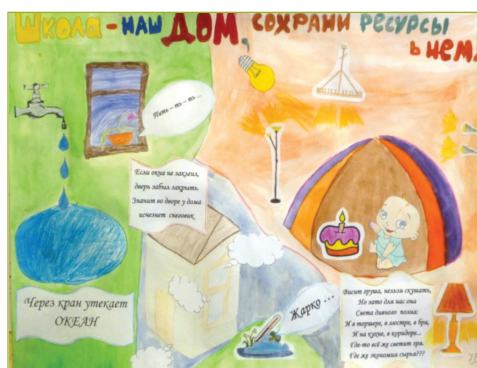 Школа - наш ДОМ, сохрани ресурсы
в нем.
Пить – пь – пь ...
Если окна не заклеил,
дверь забыл закрыть.
Значит во дворе у дома
исчезнет снеговик
Через кран утекает
ОКЕАН
Жарко ...
Висит груша, нельзя скушать,
Но зато для нас она
Света дивного полна:
И в торшере, в люстре, в бра,
И на кухне, в коридоре...
Где-то всё же светит зря.
Где же экономия сырья???